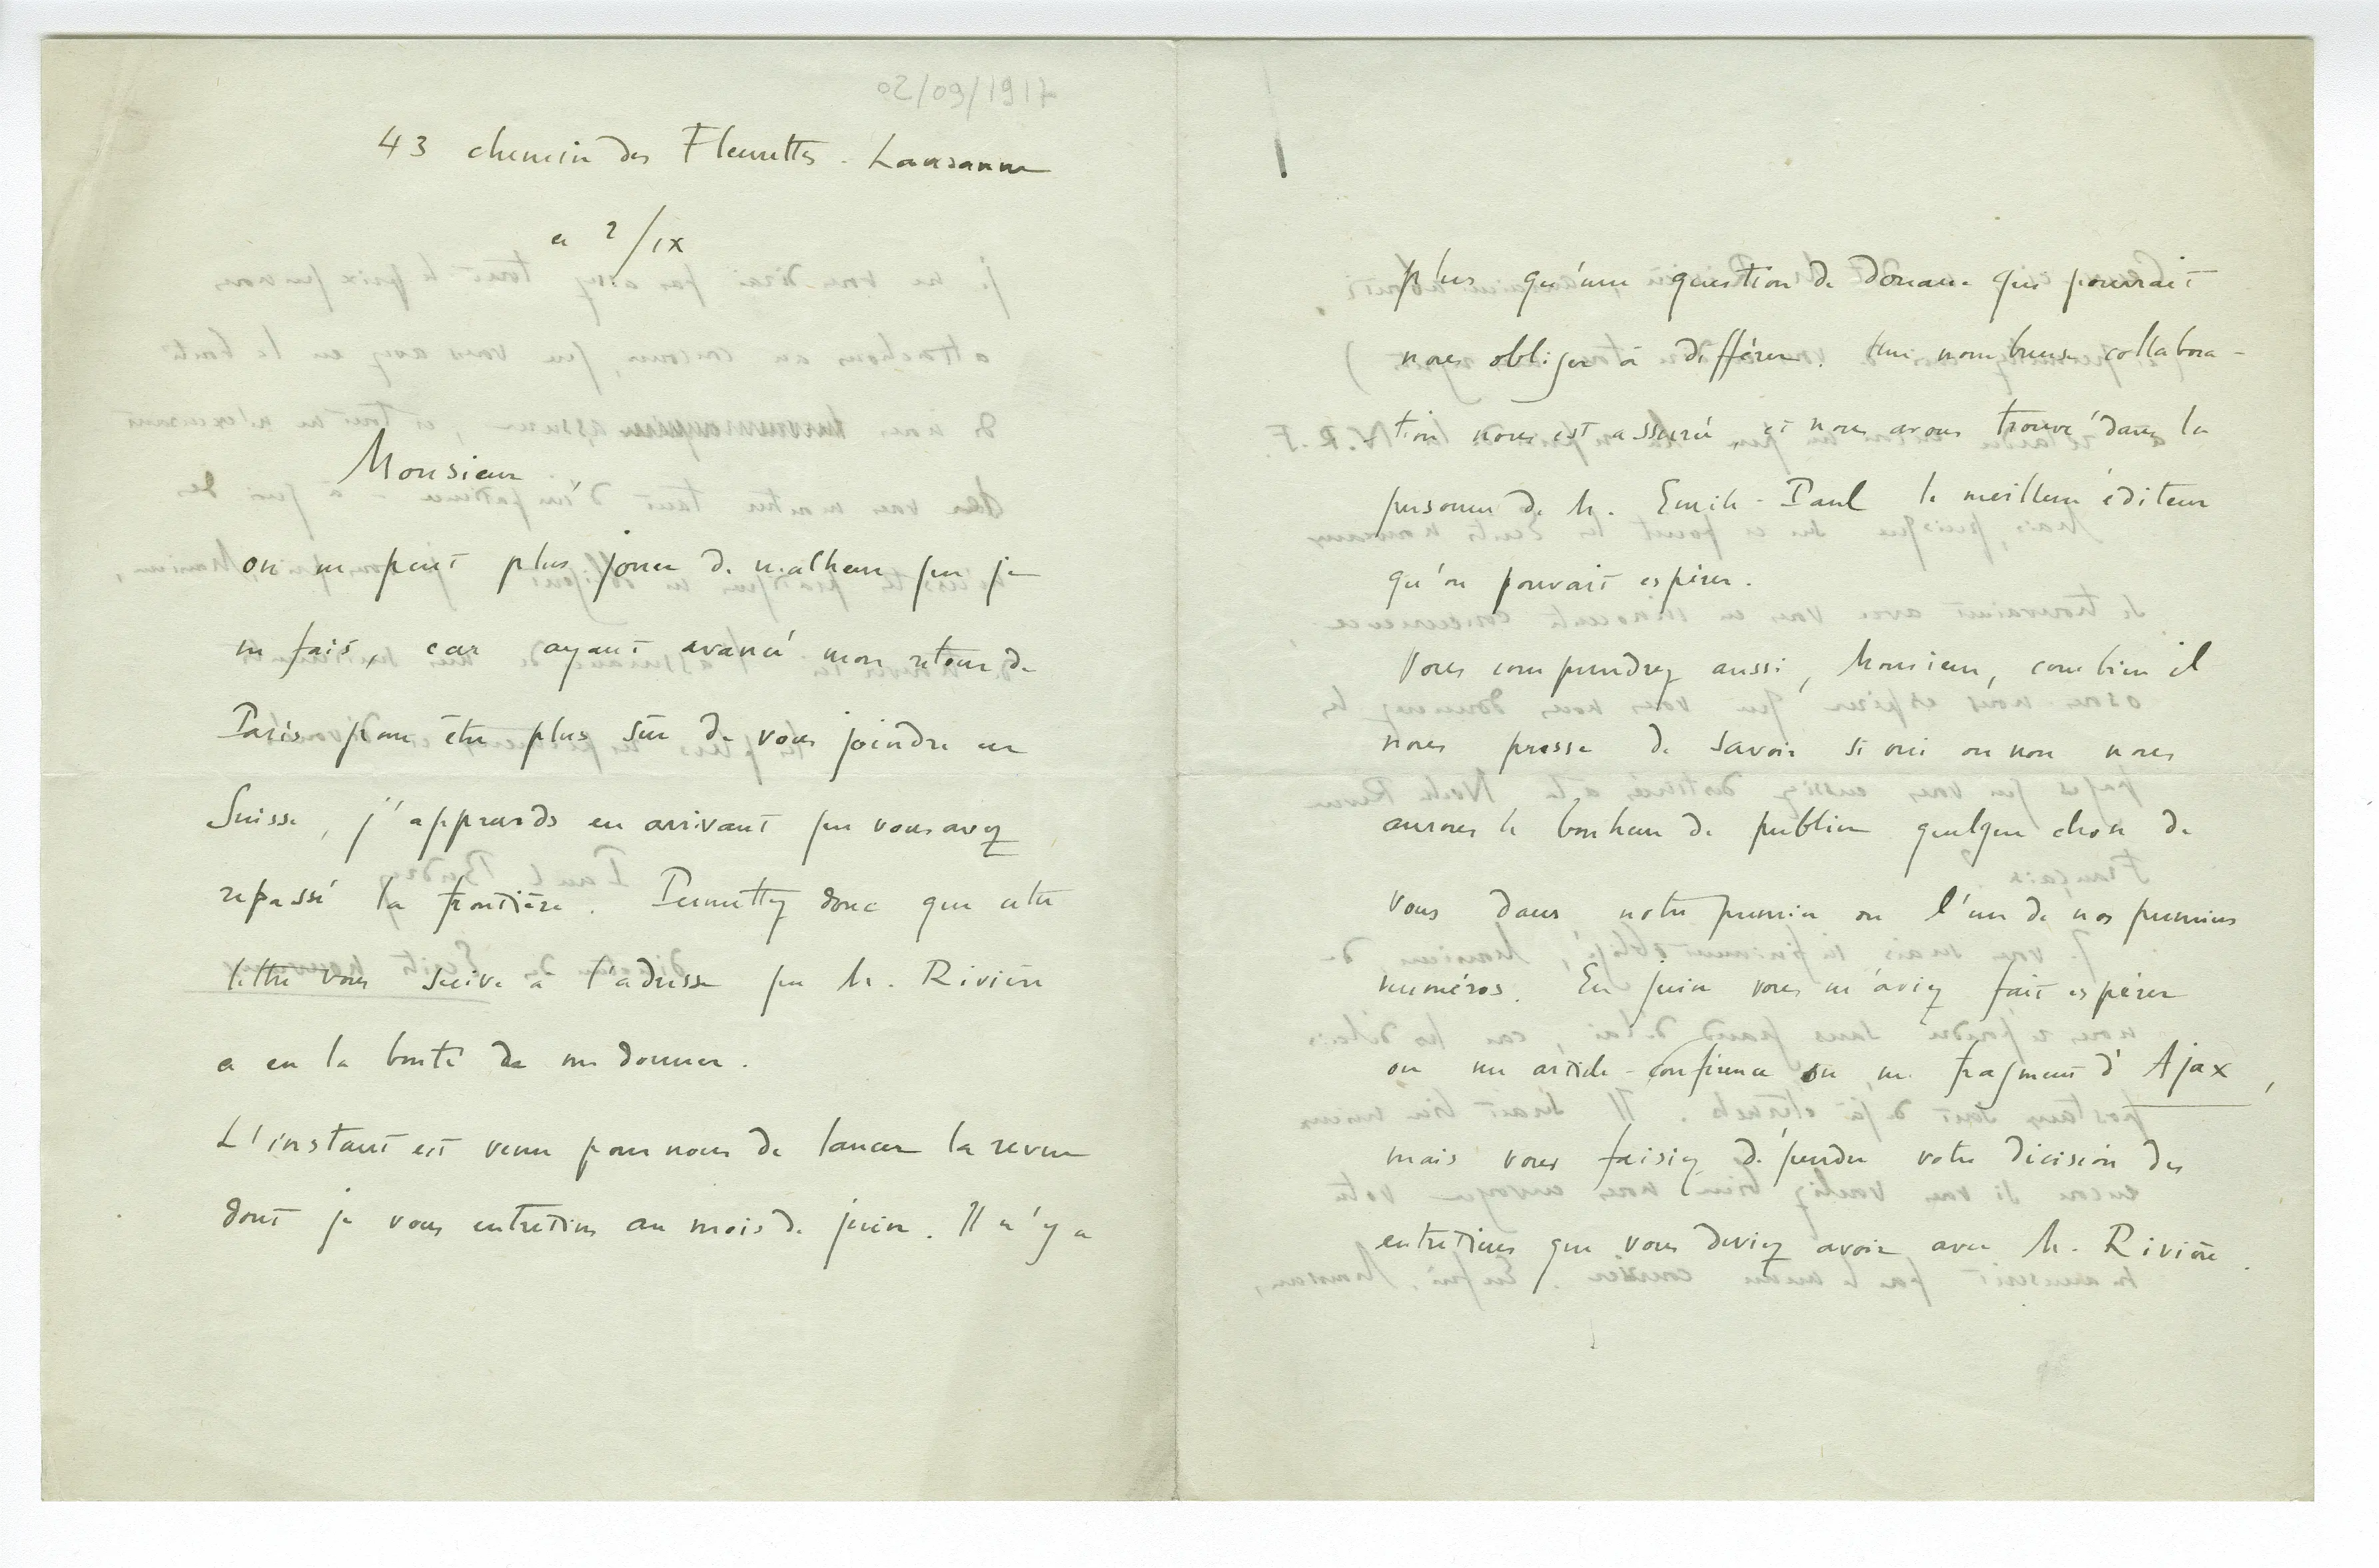 02/09/1917
43 chemin des Fleurettes - Lausanne
ce 2/IX
Monsieur
on ne peut plus jouer de malheur que je
ne fais, car ayant avancé mon retour de
Paris pour être plus sûr de vous joindre en
Suisse, j'apprends en arrivant que vous avez
repassé la frontière. Permettez donc que cette
lettre vous suive à l'adresse que M. Rivière
a eu la bonté de me donner.
L'instant est venu pour nous de lancer la revue
dont je vous entretins au mois de juin. Il n'y a
plus qu'une question de douane qui pourrait
nous obliger à différer. Une nombreuse collabora-
-tion nous est assurée, et nous avons trouvé dans la
personne de M. Emile-Paul le meilleur éditeur
qu'on pouvait espérer.
Vous comprendrez aussi, Monsieur, combien il
nous presse de savoir si oui ou non nous
aurons le bonheur de publier quelque chose de
vous dans notre premier ou l'un de nos premiers
numéros. En juin vous m'aviez fait espérer
ou un article-conférence ou un fragment d'Ajax,
mais vous faisiez dépendre votre décision des
entretiens que vous deviez avoir avec M. Rivière.